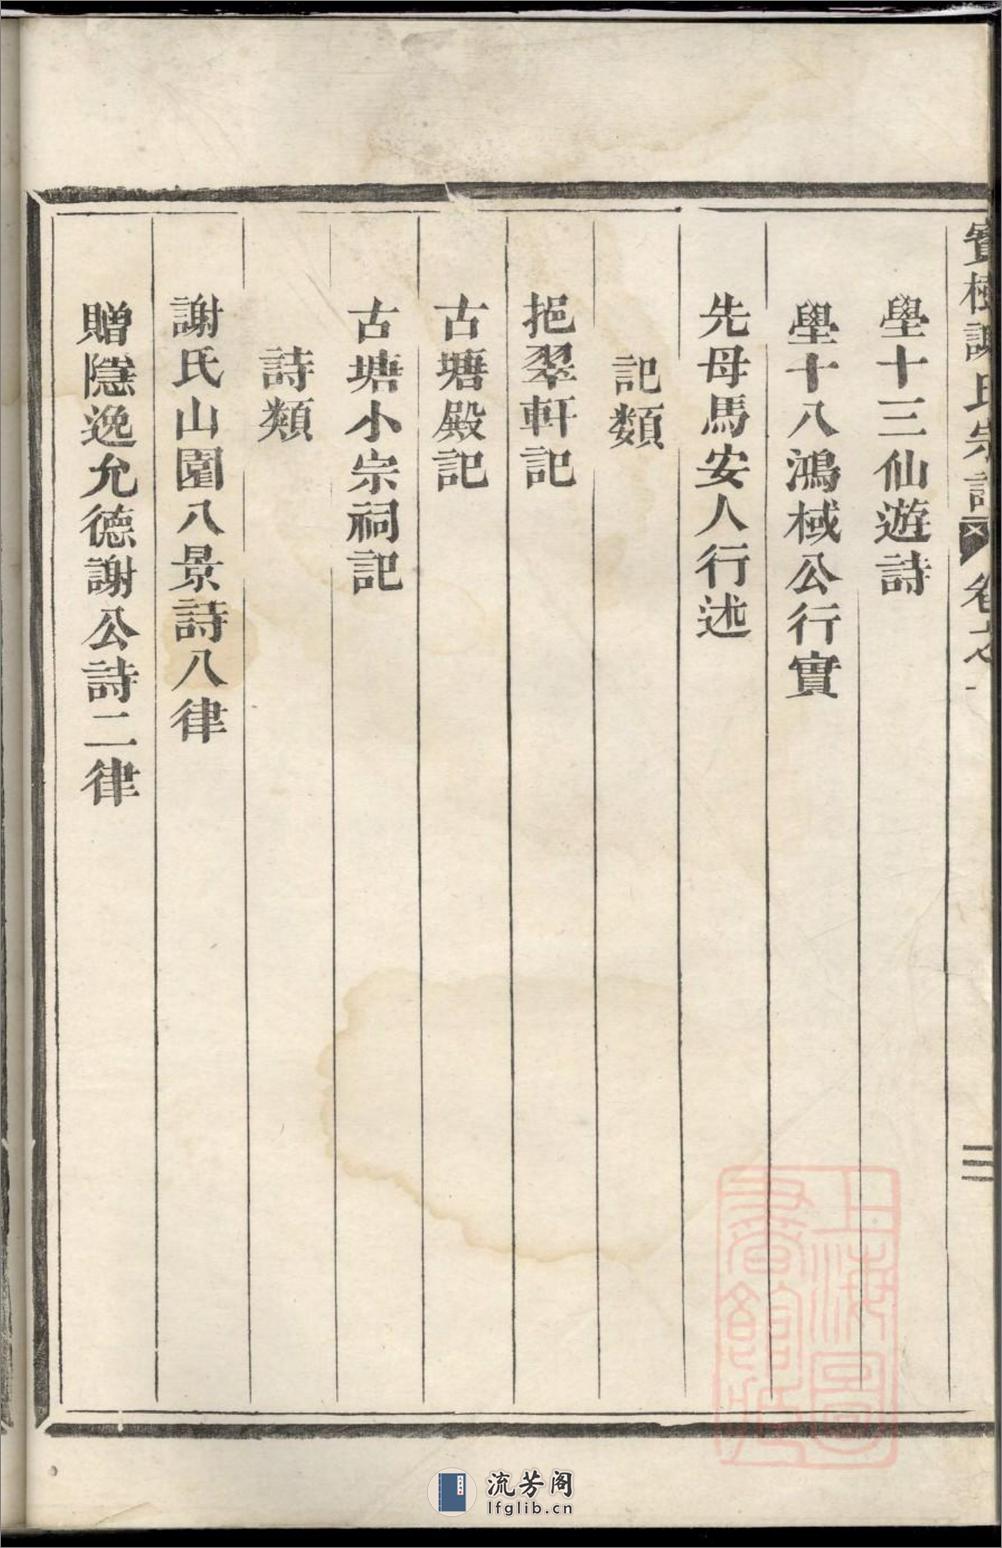 寶樹謝氏宗譜 卷之一 三
學十三仙遊詩
學十八鴻棫公行實
先母馬安人行述
記類
挹翠軒記
古塘殿記
古塘小宗祠記
詩類
謝氏山園八景詩八律
贈隱逸允德謝公詩二律
上海圖
書館藏
流芳阁
lfglib.cn